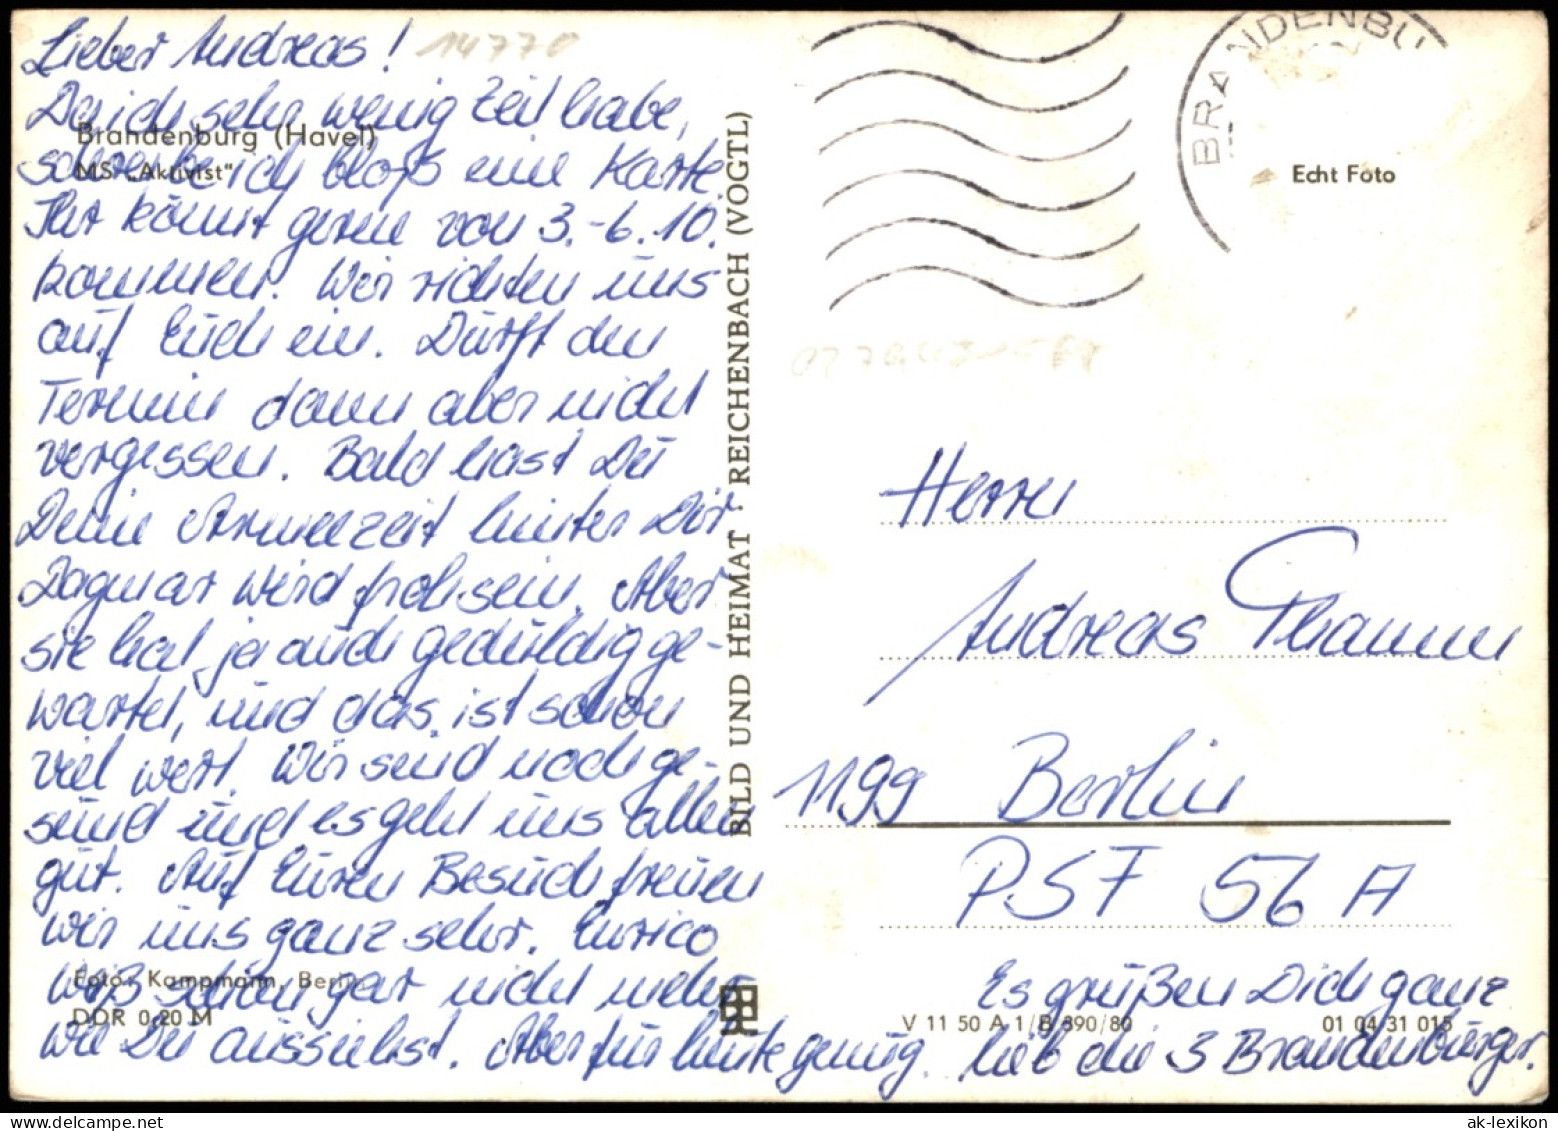 Lieber Andreas!
Da ich sehr wenig Zeit habe,
schreibe ich bloß eine Karte.
Ihr könnt gerne von 3.-6.10.
kommen. Wir richten uns
auf Euch ein. Dürft den
Termin dann aber nicht
vergessen. Bald hast Du
Deine Armeezeit hinter Dir
Dagmar wird froh sein. Aber
sie hat ja auch geduldig ge-
wartet, und das ist schon
viel wert. Wir sind noch ge-
sund und es geht uns allen
gut. Auf Euren Besuch freuen
wir uns ganz sehr. Enrico
weiß schon gar nicht mehr
wie Du aussiehst. Aber für heute genug.
Es grüßen Dich ganz
lieb die 3 Brandenburger.
14770
Brandenburg (Havel)
MS „Aktivist"
Foto: Kampmann, Berlin
DDR 0,20 M
BILD UND HEIMAT · REICHENBACH (VOGTL)
BRANDENBU
Echt Foto
Herrn
Andreas Thamm
1199 Berlin
PSF 56 A
V 11 50 A 1/B 890/80
01 04 31 015
ak-lexikon.com